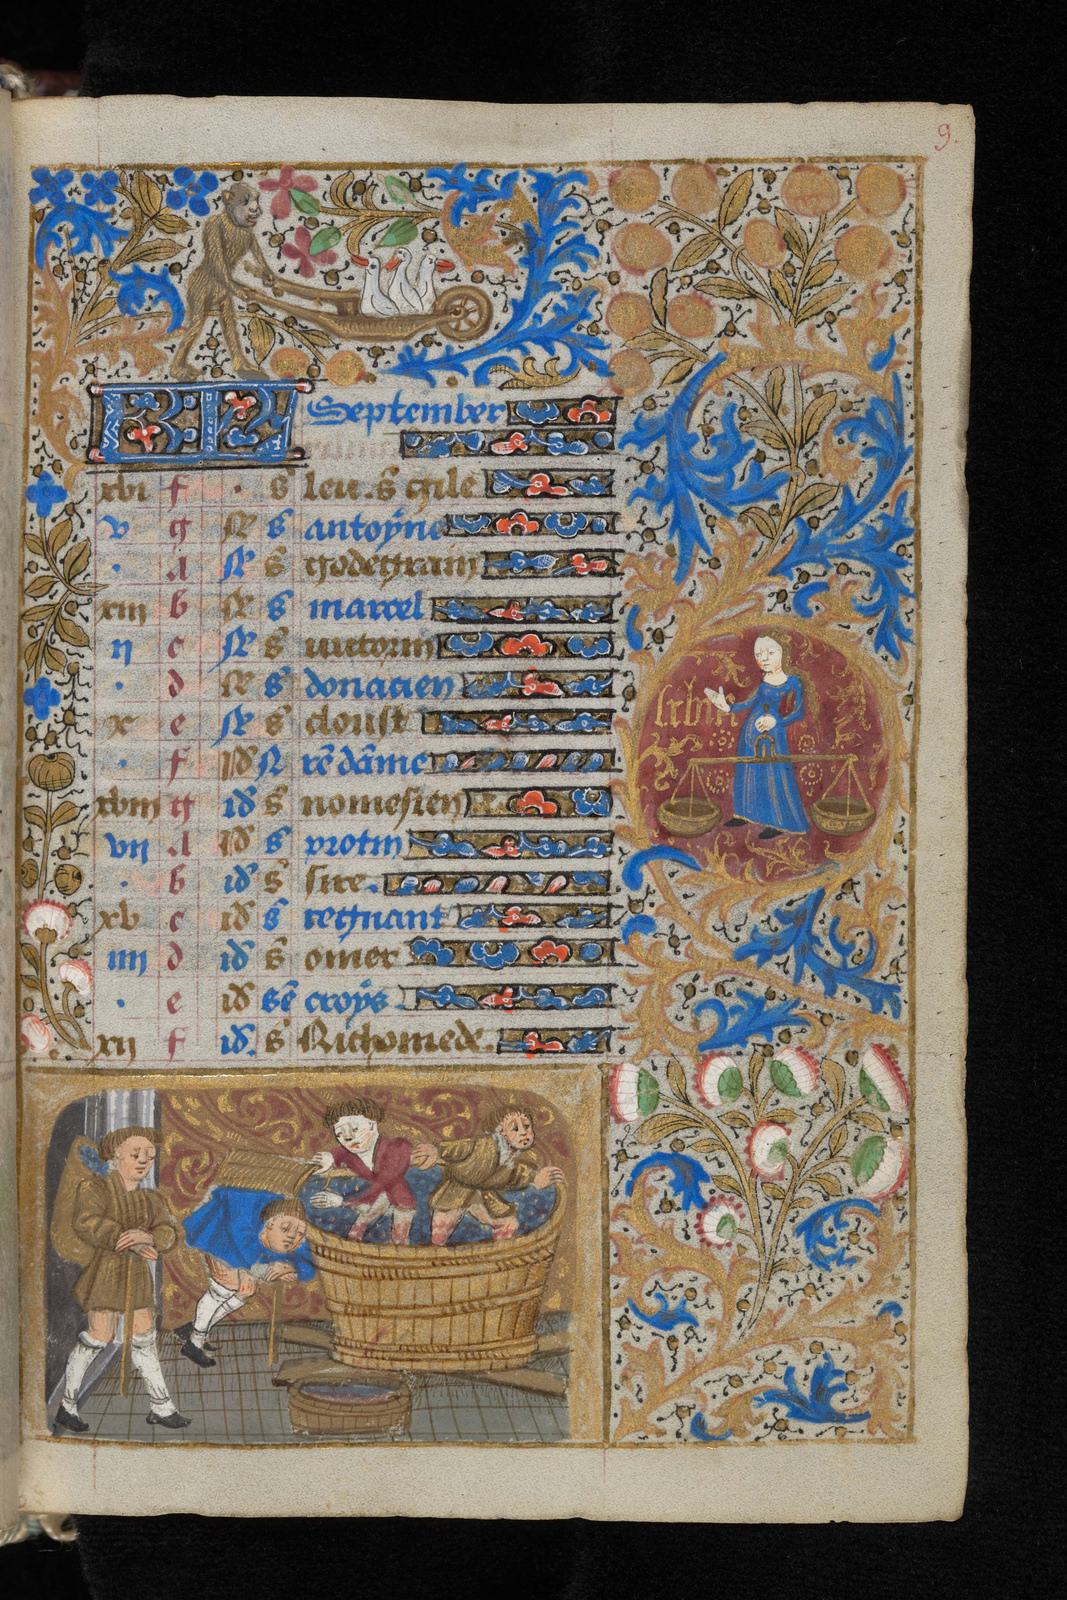 9.
KL September
xvi f . s̄ leu. s̄ gile
v g N̄ s̄ antoÿne
. A N̄ s̄ godegrain
xiii b N̄ s̄ marcel
ii c N̄ s̄ victorin
. d N̄ s̄ donacien
x e N̄ s̄ cloust
. f id̄ N rē dāme
xviii g id̄ s̄ nomesien
vii A id̄ s̄ protin
. b id̄ s̄ sire.
xv c id̄ s̄ regnant
iiii d id̄ s̄ omer
. e id̄ sē croÿs
xii f id̄. s̄ Richomede.